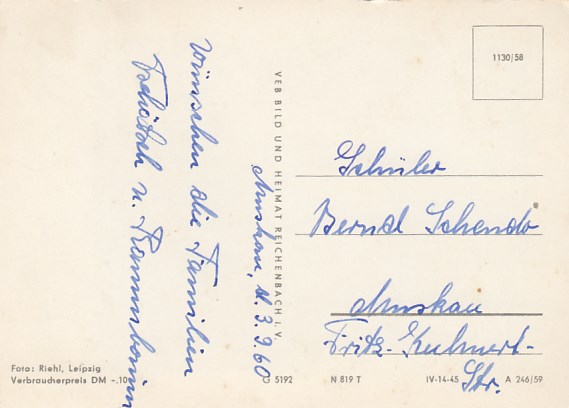 wünschen die Familien
u.
Muskau, d. 3.9.60
VEB BILD UND HEIMAT REICHENBACH I. V.
1130/58
Schüler
Bernd Schendo
Muskau
Fritz-Kuhnert-
Str.
Foto: Riehl, Leipzig
Verbraucherpreis DM -.10
G 5192 N 819 T IV-14-45 A 246/59